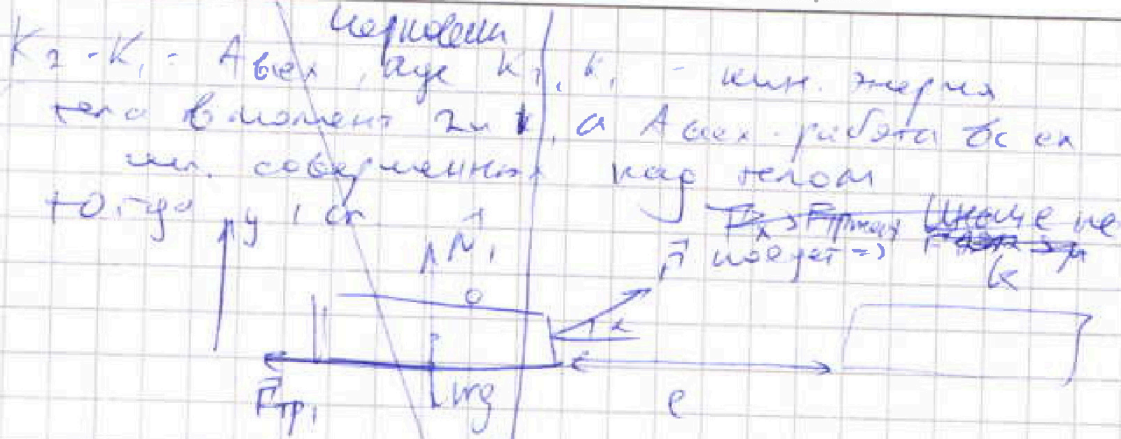 Черновик
K₂ - K₁ = Aвсех, где K₂, K₁ - кин. энергия
тела в момент 2 и 1, а Aвсех - работа всех
сил, совершенная над телом
тогда y 1 сл
N₁ Fₓ > Fтрmax Иначе не
F поедет =>
0 k
α
Fтр₁ mg l